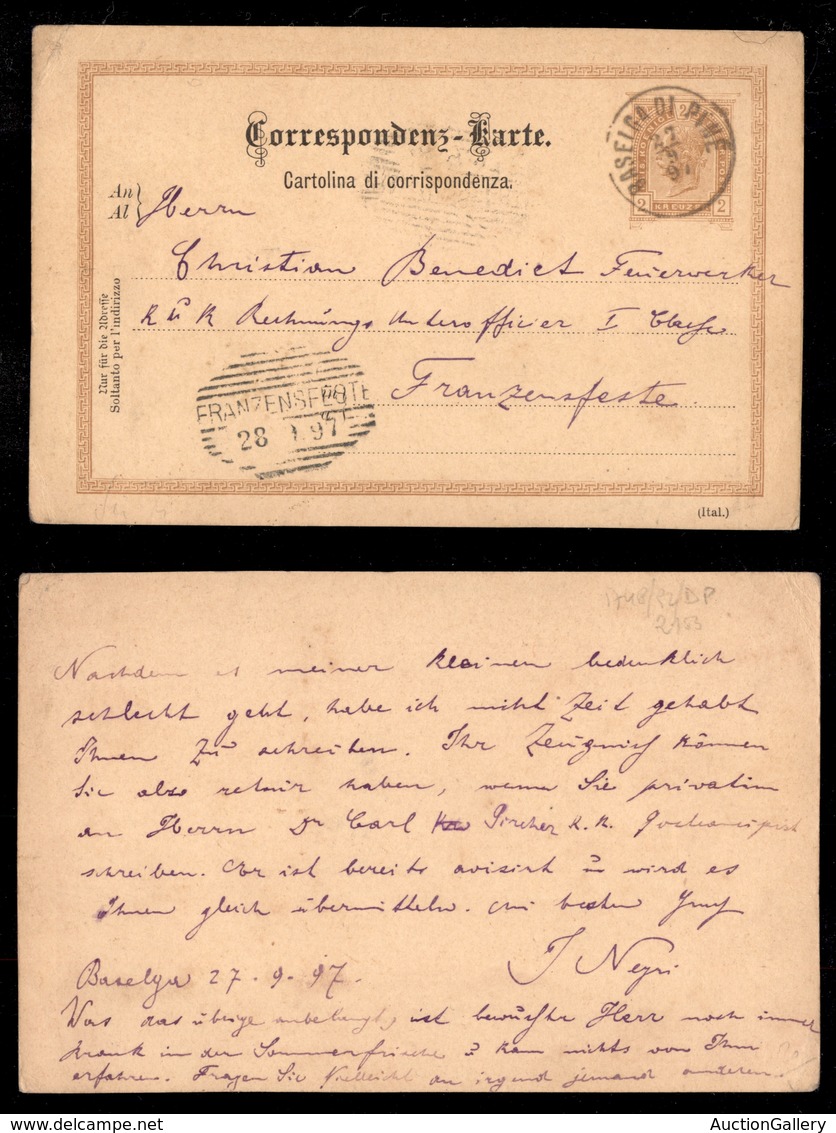 Correspondenz-Karte.
Cartolina di corrispondenza.
BASELGA DI PINÈ
27
97
2
2 KREUZER 2
An
Al
Herrn
Christian Benedict Feuerwerker
K u K Rechnungs Unterofficier I Classe
Franzensfeste
Nur für die Adresse
Soltanto per l'indirizzo
FRANZENSFESTE
28 9 97
(Ital.)
1748/92/DP
2153
Nachdem es meiner kleinen bedenklich
schlecht geht, habe ich nicht Zeit gehabt
Ihnen zu schreiben. Ihr Zeugniss können
Sie also retour haben, wenn Sie privatim
an Herrn Dr Carl Pircher K. K.
schreiben. Er ist bereits avisirt u wird es
Ihnen gleich übermitteln. mi besten Gruß
J Negri
Baselga 27. 9. 97.
Was das übrige anbelangt, ist bewußte Herr noch immer
krank in der Sommerfrische u kann nichts von Ihm
erfahren. Fragen Sie Vielleicht an irgend jemand anderen.
AuctionGallery